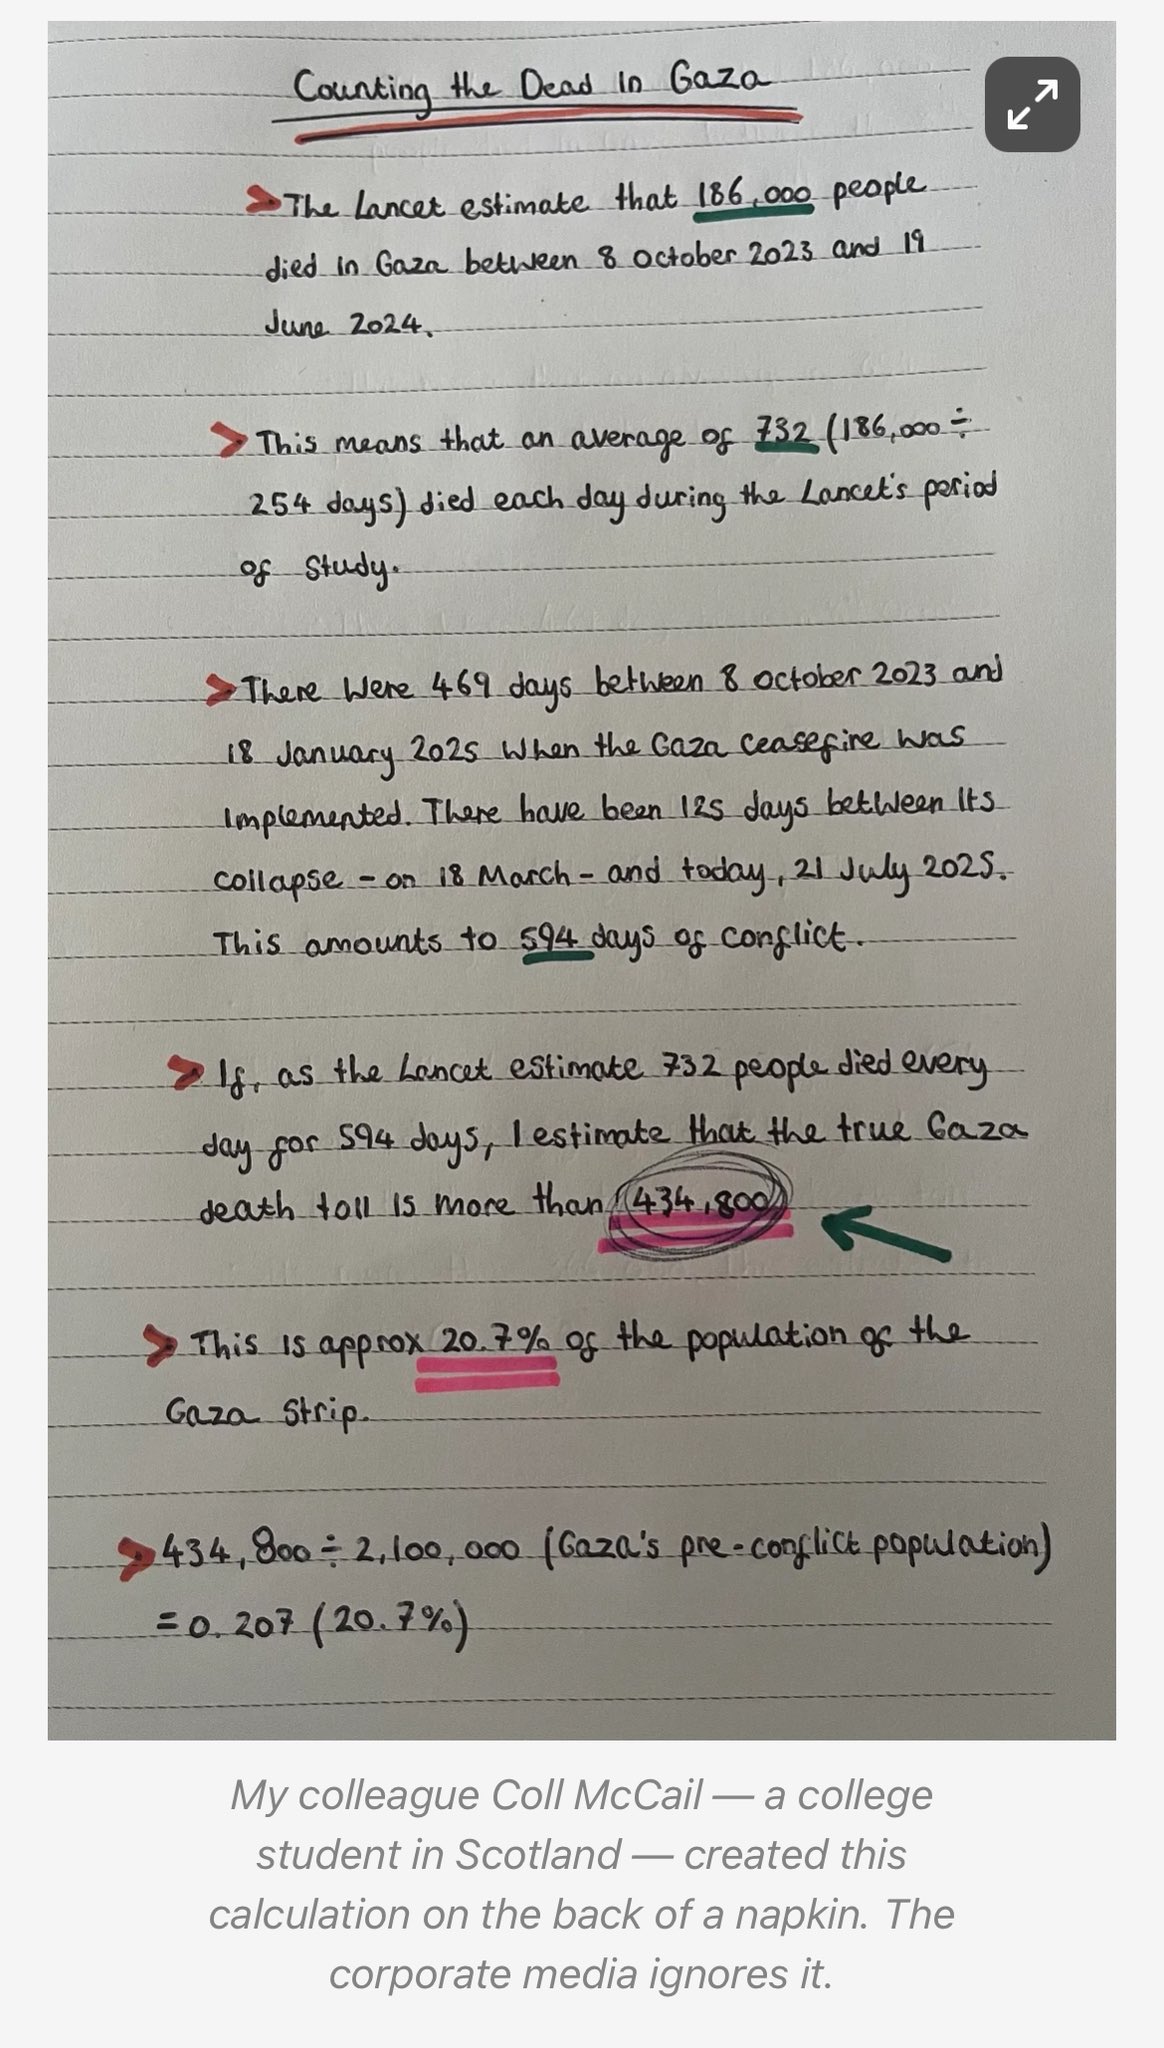 Counting the Dead in Gaza
The Lancet estimate that 186,000 people
died in Gaza between 8 October 2023 and 19
June 2024.
This means that an average of 732 (186,000 ÷
254 days) died each day during the Lancet's period
of study.
There were 469 days between 8 October 2023 and
18 January 2025 when the Gaza ceasefire was
implemented. There have been 125 days between its
collapse - on 18 March - and today, 21 July 2025.
This amounts to 594 days of conflict.
If, as the Lancet estimate 732 people died every
day for 594 days, I estimate that the true Gaza
death toll is more than 434,800
This is approx 20.7% of the population of the
Gaza Strip.
434,800 ÷ 2,100,000 (Gaza's pre-conflict population)
= 0.207 (20.7%)
My colleague Coll McCail — a college
student in Scotland — created this
calculation on the back of a napkin. The
corporate media ignores it.